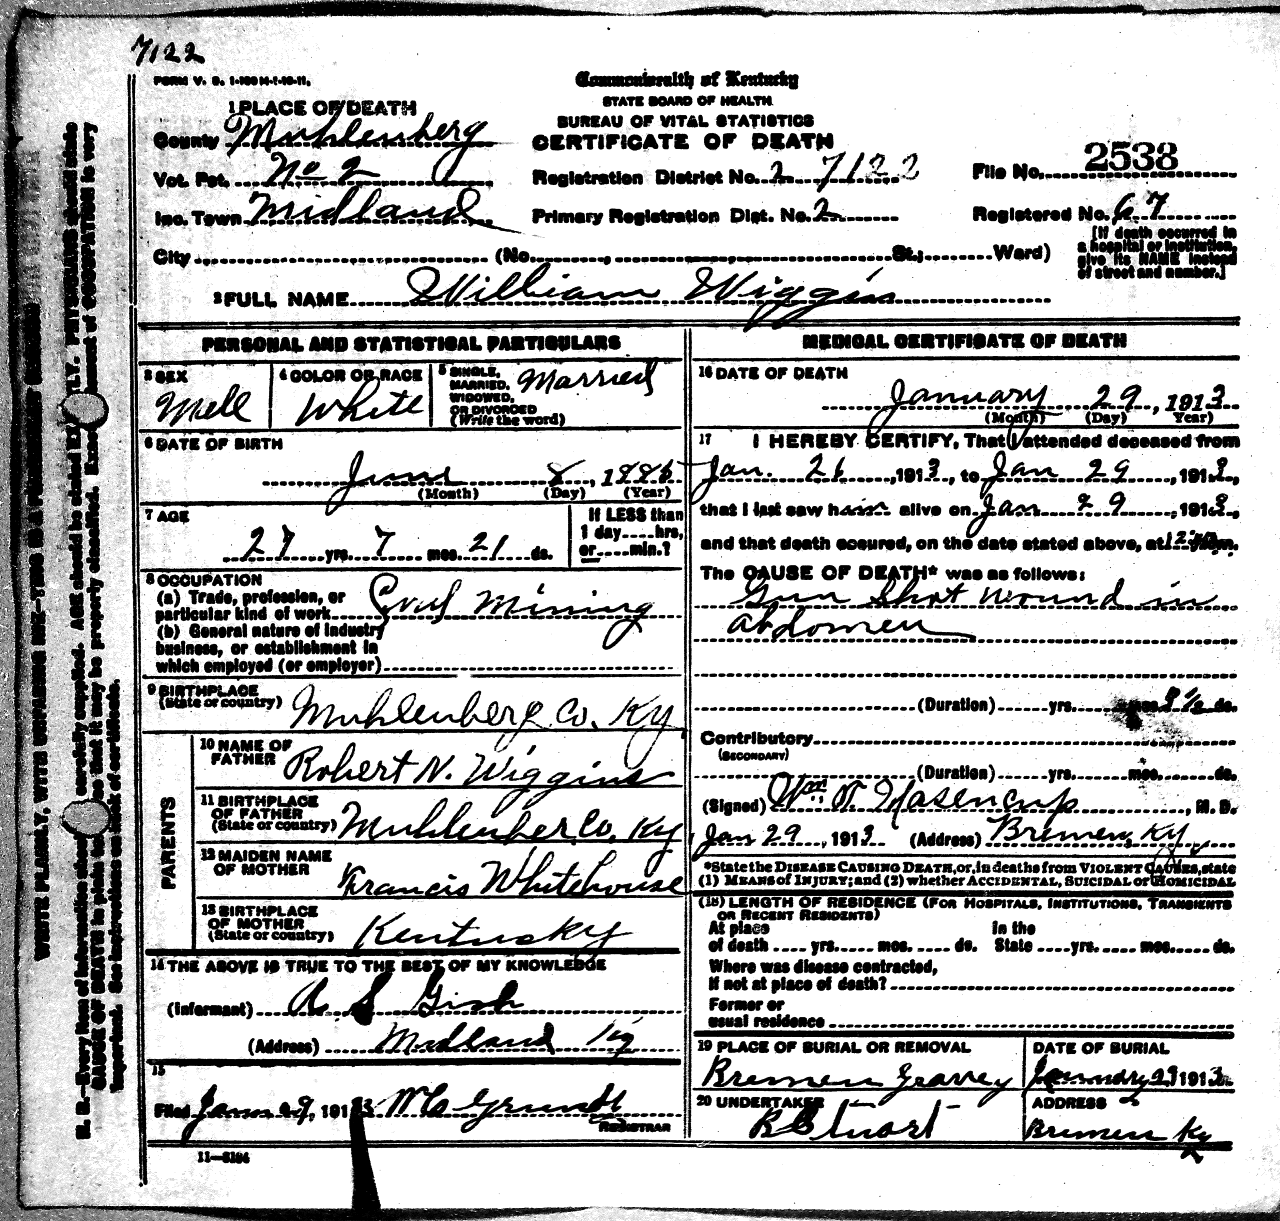 7122
FORM V. S. 1-100 M-1-10-11.
Commonwealth of Kentucky
STATE BOARD OF HEALTH
BUREAU OF VITAL STATISTICS
CERTIFICATE OF DEATH
1 PLACE OF DEATH
County Muhlenberg
Vot. Pct. No 2
Inc. Town Midland
City (No. , St.; Ward)
Registration District No. 2 7122
Primary Registration Dist. No. 2
File No. 2538
Registered No. 67
[If death occurred in
a hospital or institution,
give its NAME instead
of street and number.]
2 FULL NAME William Wiggins
PERSONAL AND STATISTICAL PARTICULARS
3 SEX
Mell
4 COLOR OR RACE
White
5 SINGLE,
MARRIED,
WIDOWED,
OR DIVORCED
(Write the word)
Married
6 DATE OF BIRTH
June 8, 1886
(Month) (Day) (Year)
7 AGE
27 yrs. 7 mos. 21 ds.
If LESS than
1 day....hrs,
or....min.?
8 OCCUPATION
(a) Trade, profession, or
particular kind of work Coal Mining
(b) General nature of industry
business, or establishment in
which employed (or employer)
9 BIRTHPLACE
(State or country) Muhlenberg Co. Ky
PARENTS
10 NAME OF
FATHER Robert N. Wiggins
11 BIRTHPLACE
OF FATHER
(State or country) Muhlenber Co. Ky
12 MAIDEN NAME
OF MOTHER Francis Whitehouse
13 BIRTHPLACE
OF MOTHER
(State or country) Kentucky
14 THE ABOVE IS TRUE TO THE BEST OF MY KNOWLEDGE
(Informant) A S Gish
(Address) Midland Ky
15
Filed Jan 29, 1913
REGISTRAR
11-5184
MEDICAL CERTIFICATE OF DEATH
16 DATE OF DEATH
January 29, 1913
(Month) (Day) (Year)
17 I HEREBY CERTIFY, That I attended deceased from
Jan. 26, 1913, to Jan 29, 1913,
that I last saw him alive on Jan 29, 1913,
and that death occured, on the date stated above, at m.
The CAUSE OF DEATH* was as follows:
Gun Shot wound in
abdomen
(Duration) yrs. mos. 3 1/2 ds.
Contributory
(SECONDARY)
(Duration) yrs. mos. ds.
(Signed) Wm V. Hasencup, M. D.
Jan 29, 1913 (Address) Bremen, Ky
*State the DISEASE CAUSING DEATH, or, in deaths from VIOLENT CAUSES, state
(1) MEANS of INJURY; and (2) whether ACCIDENTAL, SUICIDAL or HOMICIDAL
(18) LENGTH OF RESIDENCE (FOR HOSPITALS, INSTITUTIONS, TRANSIENTS
OR RECENT RESIDENTS)
At place In the
of death .... yrs. .... mos. .... ds. State .... yrs. .... mos. .... ds.
Where was disease contracted,
If not at place of death?
Former or
usual residence
19 PLACE OF BURIAL OR REMOVAL
Bremen Gravey
DATE OF BURIAL
January 29 1913
20 UNDERTAKER
B G Stuart
ADDRESS
Bremen Ky